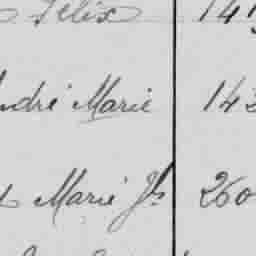 Felix 14
André Marie 14
Marie Jh 260